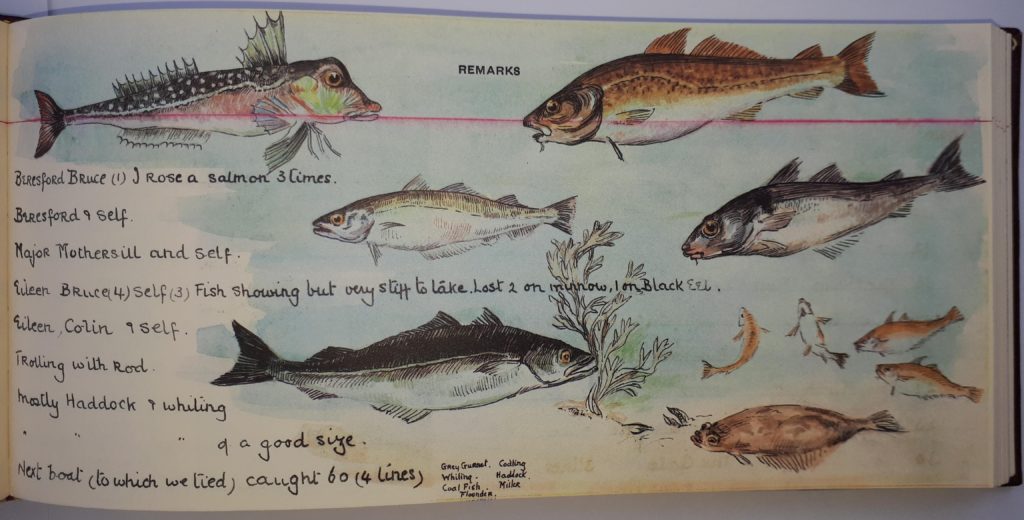 REMARKS
Beresford Bruce (1) I rose a salmon 3 times.
Beresford & Self.
Major Mothersill and Self.
Eileen Bruce (4) Self (3) Fish showing but very stiff to take. Lost 2 on minnow, 1 on Black Eel.
Eileen, Colin & Self.
Trolling with Rod.
Mostly Haddock & whiting
" " " of a good size.
Next boat (to which we tied) caught 60 (4 lines)
Grey Gurnet. Codling
Whiting. Haddock.
Coal Fish.
Flounder.